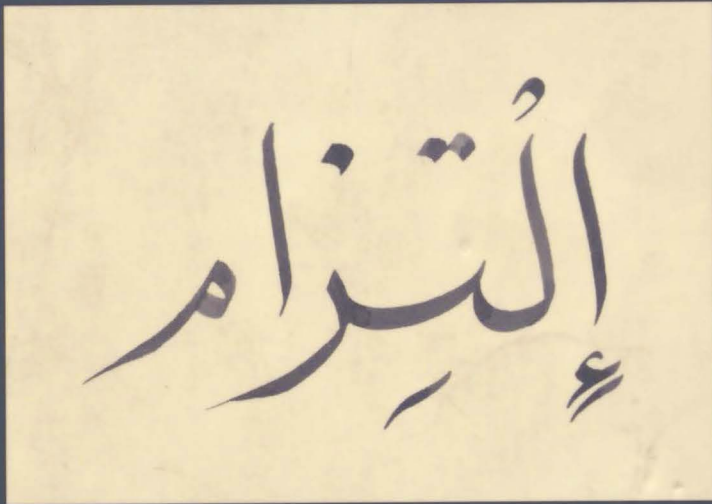 إلُتِزام